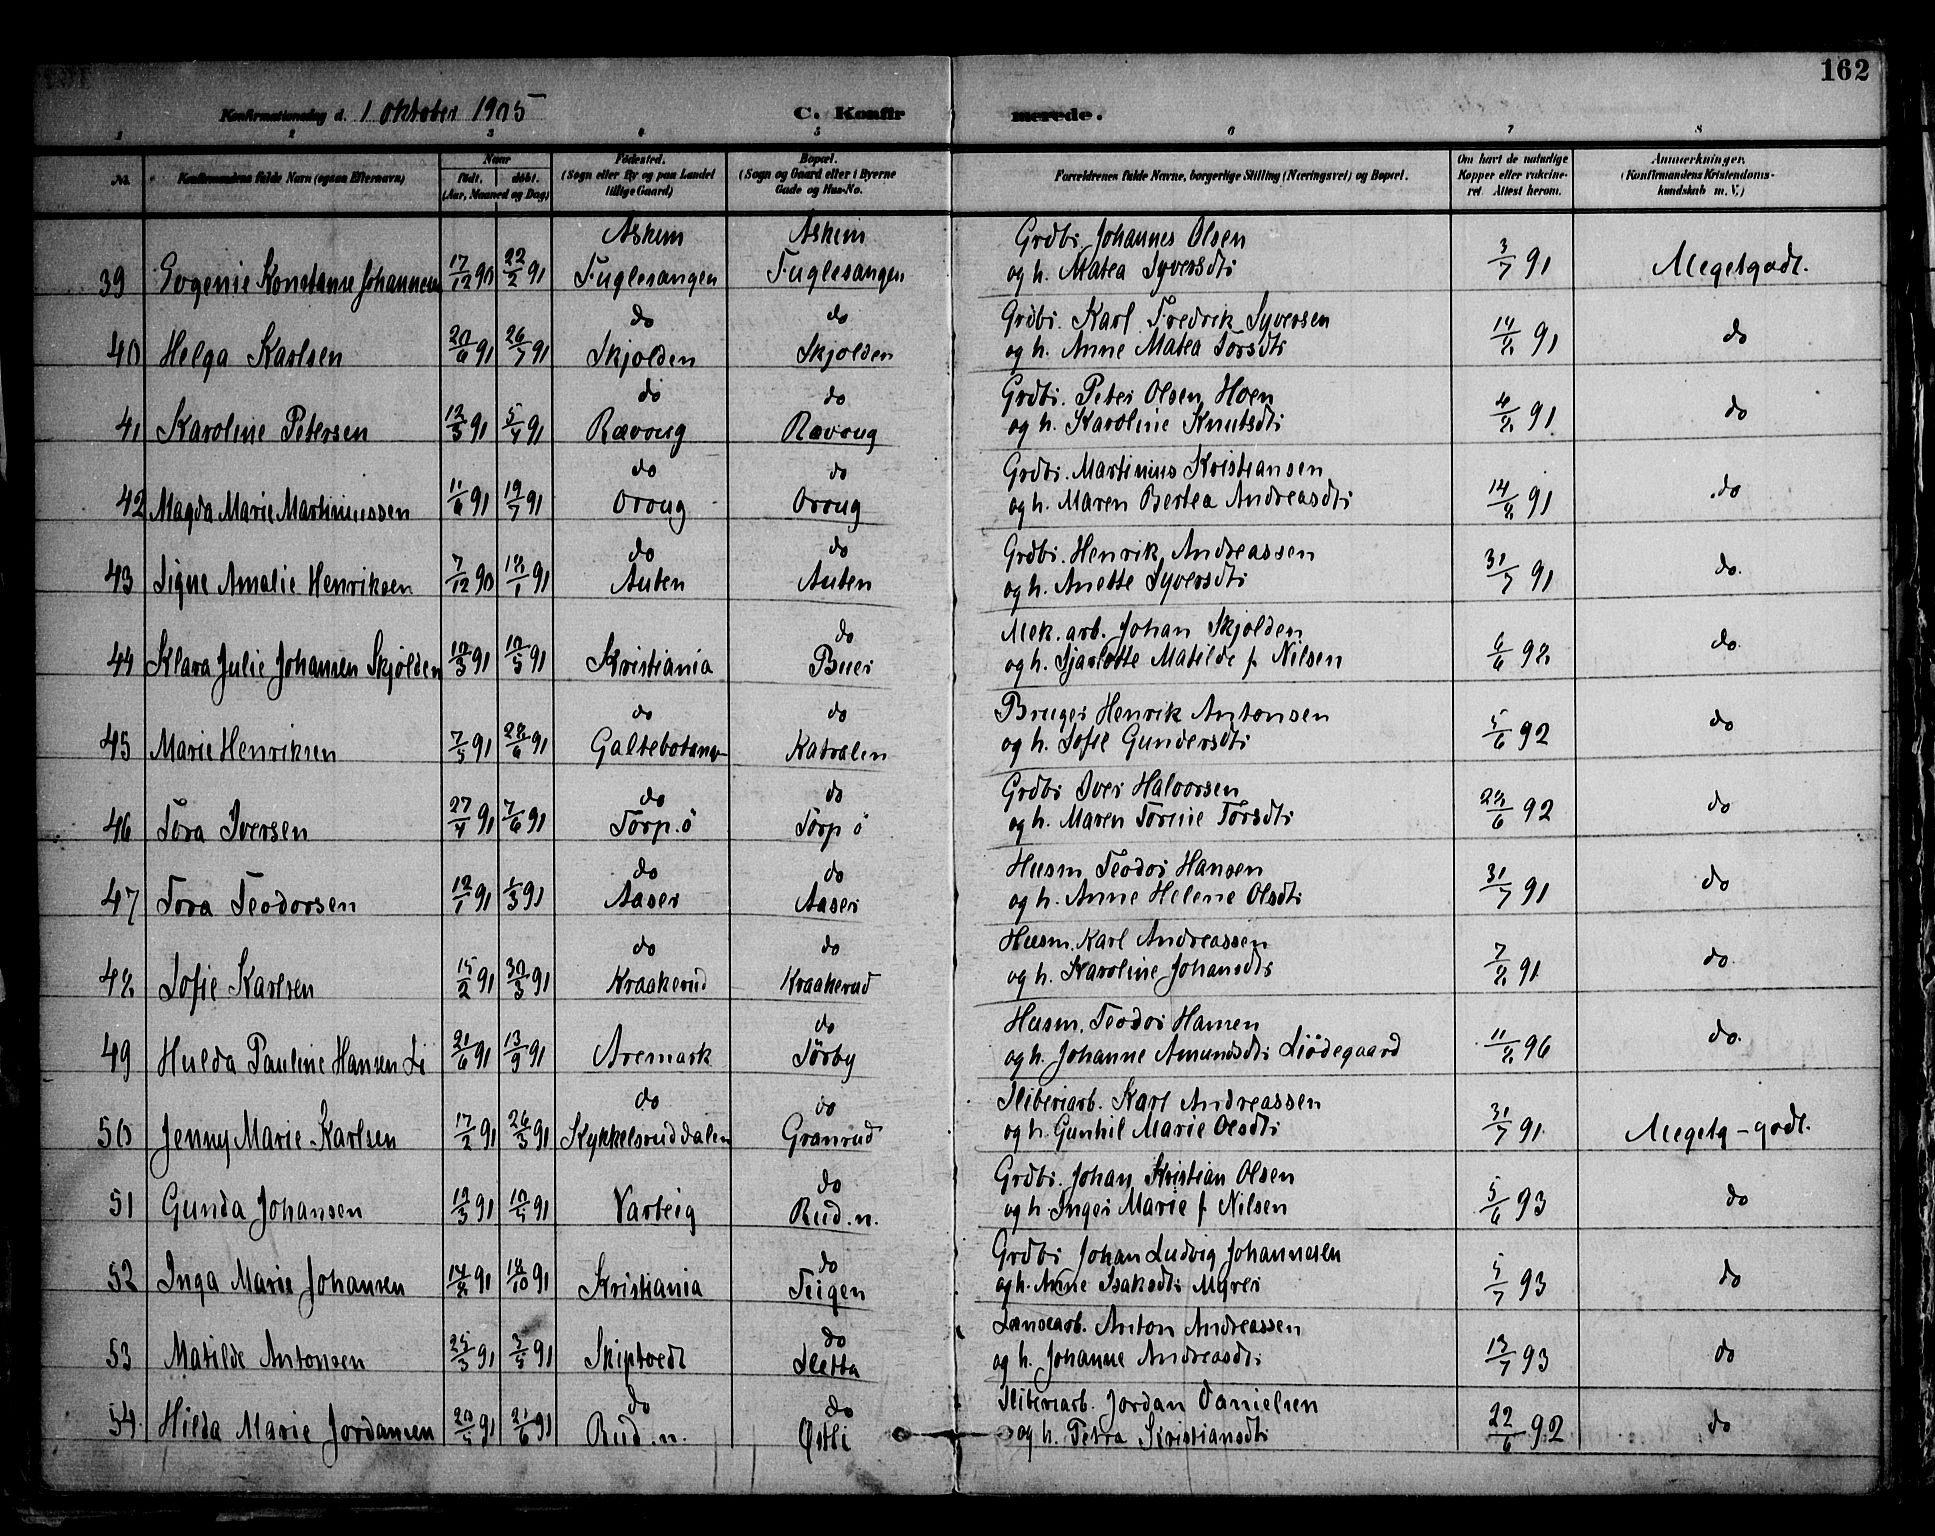 162
Konfirmationsdag d. 1 Oktober 1905 C. Konfir merede.
1 2 3 4 5 6 7 8
No. Konfirmandens fulde Navn (ogsaa Efternavn) Naar født. døbt. (Aar, Maaned og Dag) Fødested. (Sogn eller By og paa Landet tillige Gaard) Bopæl. (Sogn og Gaard eller i Byerne Gade og Hus-No. Forældrenes fulde Navne, borgerlige Stilling (Næringsvei) og Bopæl. Om havt de naturlige Kopper eller vakcineret. Attest herom. Anmærkninger. (Konfirmandens Kristendomskundskab m. V.)
Askim Askim Grdbr. Johannes Olsen
39 Evgenie Konstanse Johannesen 17/12 90 22/2 91 Fuglesangen Fuglesangen og h. Matea Syversdtr 3/7 91 Megetgodt.
do do Grdbr. Karl Fredrik Syversen
40 Helga Karlsen 20/6 91 26/7 91 Skjolden Skjolden og h. Anne Matea Torsdtr 14/8 91 do
do do Grdbr. Peter Olsen Hoen
41 Karoline Petersen 12/3 91 5/4 91 Rævoug Rævoug og h. Karoline Knutsdtr 4/8 91 do
do do Grdbr. Martinius Kristiansen
42 Magda Marie Martiniussen 11/6 91 19/7 91 Ovoug Ovoug og h. Maren Bertea Andreasdtr 14/8 91 do
do do Grdbr. Henrik Andreassen
43 Signe Amalie Henriksen 7/12 90 18/1 91 Auten Auten og h. Anette Syversdtr 31/7 91 do.
do Mek. arb. Johan Skjolden
44 Klara Julie Johansen Skjolden 10/3 91 10/5 91 Kristiania Buer og h. Sjarlotte Matilde f. Nilsen 6/6 98 do.
do do Bruger Henrik Antonsen
45 Marie Henriksen 7/5 91 28/6 91 Galtebotane Katralen og h. Sofie Gundersdtr 5/6 92 do
do do Grdbr Iver Halvorsen
46 Tora Iversen 27/4 91 7/6 91 Torp. ö Torp ö og h. Maren Torine Torsdtr 28/6 92 do
do do Husm. Teodor Hansen
47 Tora Teodorsen 12/1 91 1/3 91 Aaser Aaser og h. Anne Helene Olsdtr 31/7 91 do
do do Husm. Karl Andreassen
48 Sofie Karlsen 15/2 91 30/3 91 Kraakerud Kraakerud og h. Karoline Johansdtr 7/8 91 do.
do Husm. Teodor Hansen
49 Hulda Pauline Hansen Li 21/6 91 13/9 91 Aremark Sörby og h. Johanne Amundsdtr Liödegaard 11/8 96 do.
do do Sliberiarb. Karl Andreassen
50 Jenny Marie Karlsen 17/2 91 26/3 91 Kykkelsruddalen Granrud og h. Gunhil Marie Olsdtr 31/7 91. Megetg-godt.
do Grdbr. Johan Kristian Olsen
51 Gunda Johansen 19/3 91 10/5 91 Varteig Rud. n. og h. Inger Marie f Nilsen 5/6 93 do
do Grdbr Johan Ludvig Johannesen
52 Inga Marie Johansen 14/8 91 18/10 91 Kristiania Teigen og h. Anne Isaksdtr Marer 5/7 93 do
do Lænsearb. Anton Andreassen
53 Matilde Antonsen 25/3 91 3/5 91 Skiptvedt Sletta og h. Johanne Andreasdtr 13/7 93 do
do do Sliberiarb. Jordan Danielsen
54. Hilda Marie Jordansen 20/5 91 21/6 91 Rud. n. Østli og h. Petra Kristiansdtr 22/6 92 do